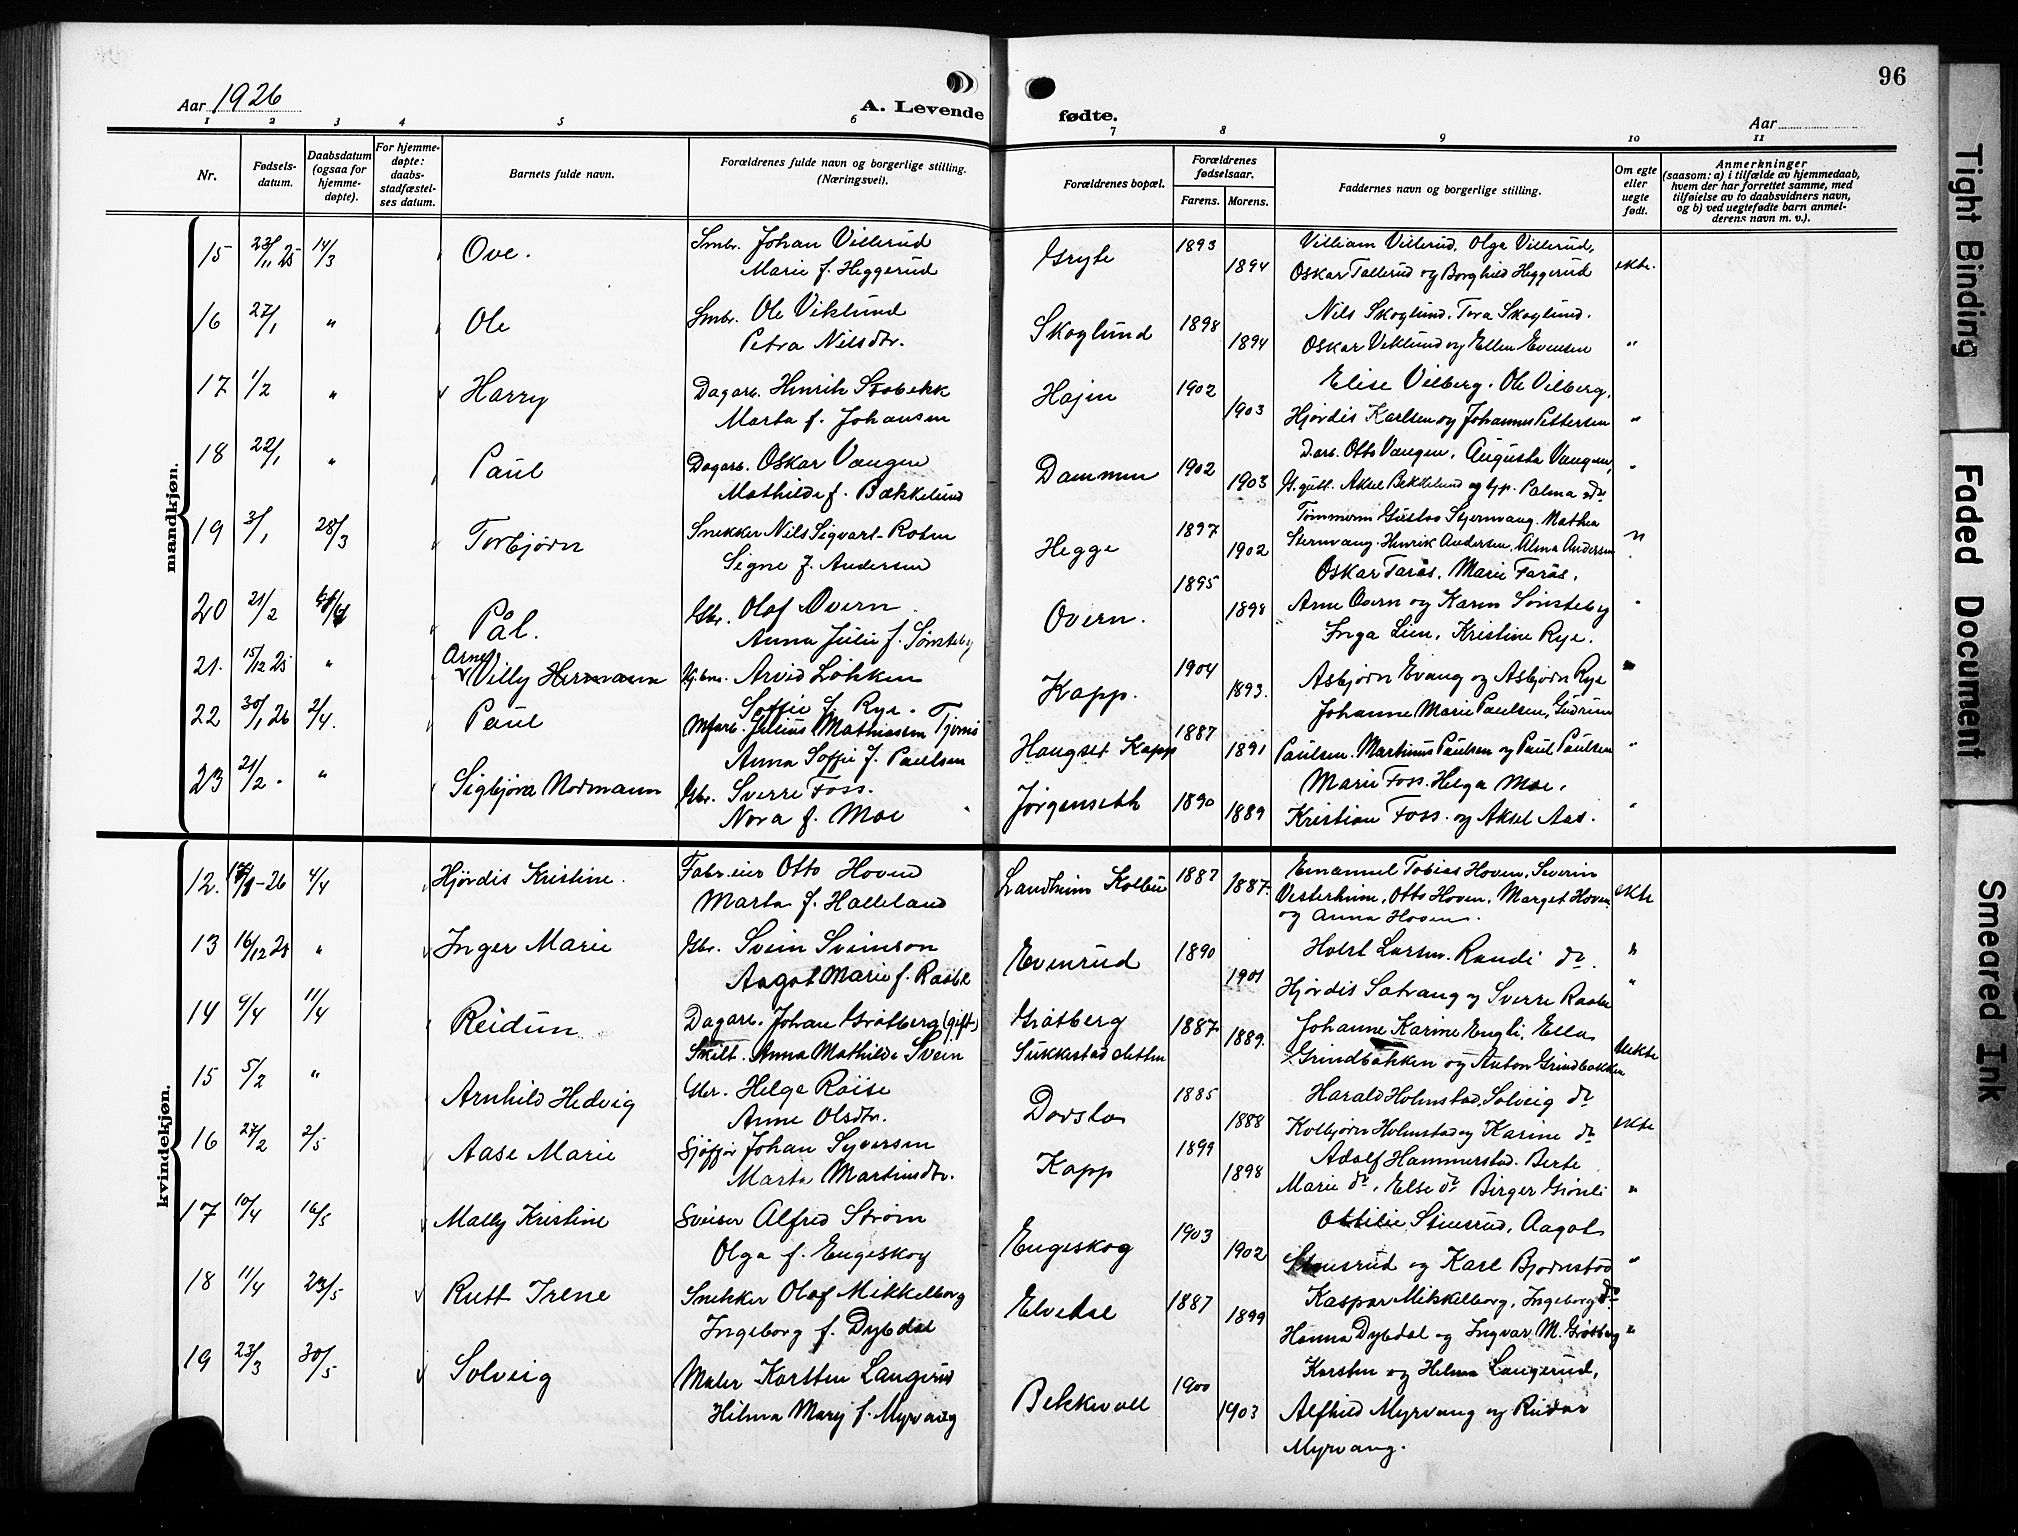 Aar 1926
A. Levende fødte.
Aar
96
1 2 3 4 5 6 7 8 9 10 11
Nr.
Fødsels-
datum.
Daabsdatum
(ogsaa for
hjemme-
døpte).
For hjemme-
døpte:
daabs-
stadfæstel-
ses datum.
Barnets fulde navn.
Forældrenes fulde navn og borgerlige stilling.
(Næringsvei).
Forældrenes bopæl.
Forældrenes
fødselsaar.
Farens. Morens.
Faddernes navn og borgerlige stilling.
Om egte
eller
uegte
født.
Anmerkninger
(saasom: a) i tilfælde av hjemmedaab,
hvem der har forrettet samme, med
tilføielse av to daabsvidners navn,
og b) ved uegtefødte barn anmel-
derens navn m. v.).
mandkjøn.
15 23/11 25 14/3 Ove. Smbr. Johan Villerud Gryte 1893 Villiam Villerud, Olga Villerud,
Marie f. Heggerud 1894 Oskar Tallerud og Borghild Heggerud ekte.
16 27/1 " Ole Smbr. Ole Viklund Skoglund 1898 Nils Skoglund, Tora Skoglund.
Petra Nilsdtr. 1894 Oskar Viklund og Ellen Evensen "
17 1/2 " Harry Dagarb. Henrik Stabekk Højen 1902 Elise Vilberg. Ole Vilberg,
Marta f. Johansen 1903 Hjørdis Karlsen og Johannes Pettersen "
18 22/1 " Paul Dagarb. Oskar Vangen Dammen 1902 D.arb. Otto Vangen, Augusta Vangen, "
Mathilde f. Bækkelund 1903 G.gutt. Aksel Bekkelund og Palma do
19 3/1 28/3 Torbjørn Snekker Nils Sigvart Roten Hegge 1897 Tømmerm Gustav Stjernvang. Mathea
Signe f. Andersen 1902 Sternvang. Henrik Andersen, Alma Andersen "
20 21/2 Pål. Gbr. Olaf Overn Overn. 1895 Oskar Tarås, Marie Tarås,
Anna Julie f. Sønsteby 1898 Arne Overn og Karen Sønsteby "
21. 15/12 25 " Arne Villy Hermann Arvid Løkken Kapp. 1904 Inga Lien, Kristine Rye.
Soffie f. Rye. 1893. Asbjørn Evang og Asbjørn Rye "
22 30/1 26 2/4. Paul Mfarb. Julius Mathiasen Tjernes Haugset Kapp 1887 Johanne Marie Paulsen, Gudrun
Anna Soffie f. Paulsen 1891 Paulsen. Martinus Paulsen og Paul Paulsen "
23 21/2 " Sigbjørn Normann Gbr. Sverre Foss. Jørgenseth 1890 Marie Foss. Helga Moe,
Nora f. Moe 1889 Kristian Foss. og Aksel Aas. "
kvindekjøn.
12. -26 4/4 Hjørdis Kristine. Fabr.eier Otto Hoven Landheim Kolbu 1887 1887. Emanuel Tobias Hoven, Severin
Marta f. Halleland Vesterheim, Otto Hoven, Marget Hoven ekte
og Anna Hoven.
13 16/12 25 " Inger Marie Gbr. Svein Sveinson Evenrud 1890 Holet Larsen. Randi do. "
Aagot Marie f. Raabe 1901 Hjørdis Satrang og Sverre Raabe "
14 9/4 11/4 Reidun Dagarb. Johan Grøtberg (gift) Grøtberg 1887 Johanne Karine Engli, Ella
Skilt. Anna Mathilde Svein Sukkestadsletten 1889. Grindbakken og Anton Grindbakken uekte
15 5/2 " Arnhild Hedvig Gbr. Helge Røise Dorsto 1885 Harald Holmstad, Solveig do
Anne Olsdtr. 1888 Kolbjørn Holmstad og Karine do ekte
16 27/2 2/5 Aase Marie Sjøfør Johan Syversen Kapp 1899 Adolf Hammerstad. Berte
Marta Martinsdtr. 1898 Marie do, Else do Birger Grønli "
17 10/4 16/5 Mally Kristine Sveiser Alfred Strøm Engeskog 1903 Ottilie Stensrud, Aagot
Olga f. Engeskog 1902 Stensrud og Karl Bjørnstad "
18 11/4 23/5 Rutt Irene Snekker Olaf Mikkelborg Elvedal 1887 Kaspar Mikkelborg, Ingeborg do
Ingeborg f. Dybdal 1899 Hanna Dybdal og Ingvar M. Grøtberg "
19 23/3 30/5 Solveig Maler Karsten Langerud Bekkevoll 1900 Karsten og Helma Langerud,
Hilma Mary f. Myrvang 1903 Alfhild Myrvang og Reidar
Myrvang.
Tight Binding
Faded Document
Smeared Ink